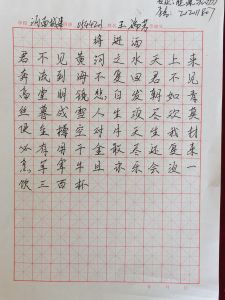 将进酒
君不见黄河之水天上来
奔流到海不复回君不见
高堂明镜悲白发朝如青
丝暮成雪人生须尽欢莫
使樽空对天生我材
必有用千金散尽还复来
羊宰牛且乐会一
饮三百杯